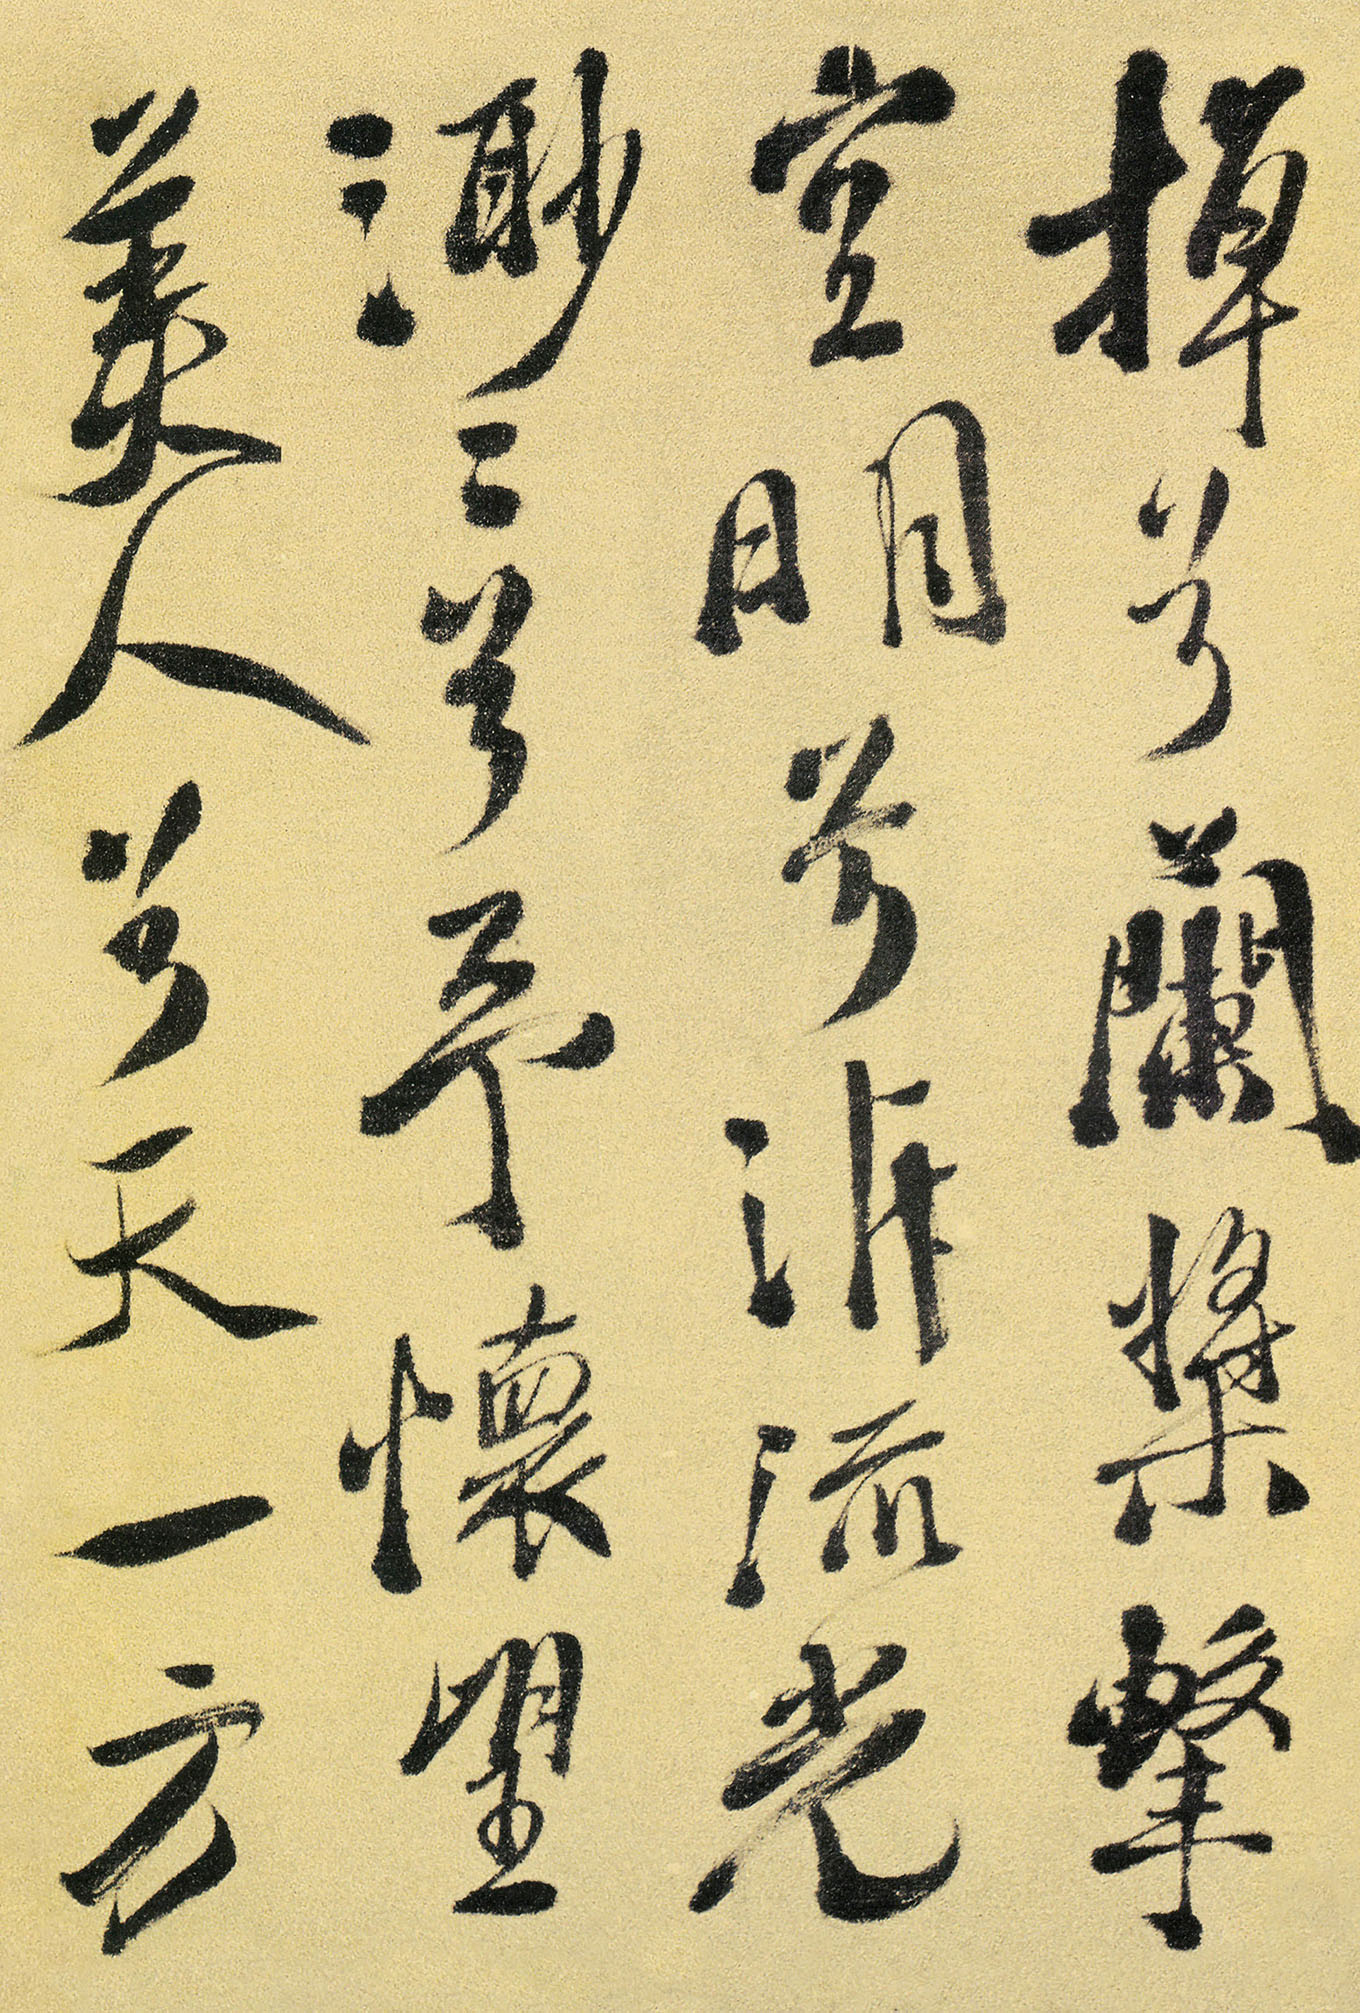 棹兮蘭槳擊
空明兮泝流光
渺〻兮予懷望
美人兮天一方